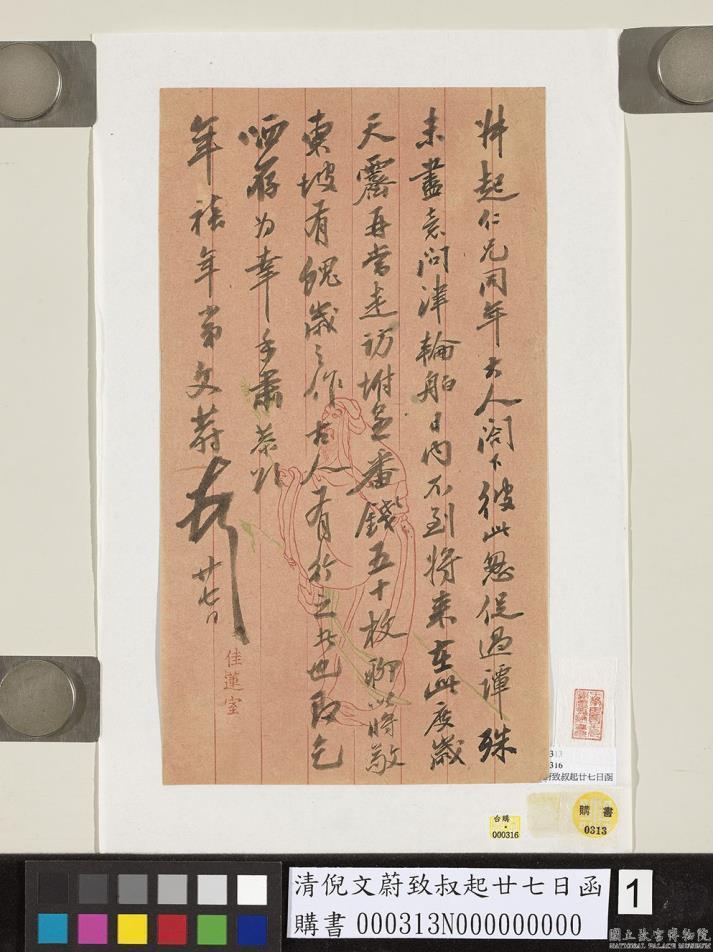 叔起仁兄同年大人閣下彼此怱促過譚殊
未盡意問津輪舶日內不到將來在此度歲
天霽再當走訪坿呈番錢五十枚聊以將敬
東坡有餽歲之作古人有行之者也敬乞
哂存為幸手肅恭叩
年禧年弟文蔚頓首
廿七日
佳蓮室
313
316
蔚致叔起廿七日函
台購
000316
購書
0313
清倪文蔚致叔起廿七日函
購書 000313N000000000
1
國立故宮博物院
NATIONAL PALACE MUSEUM